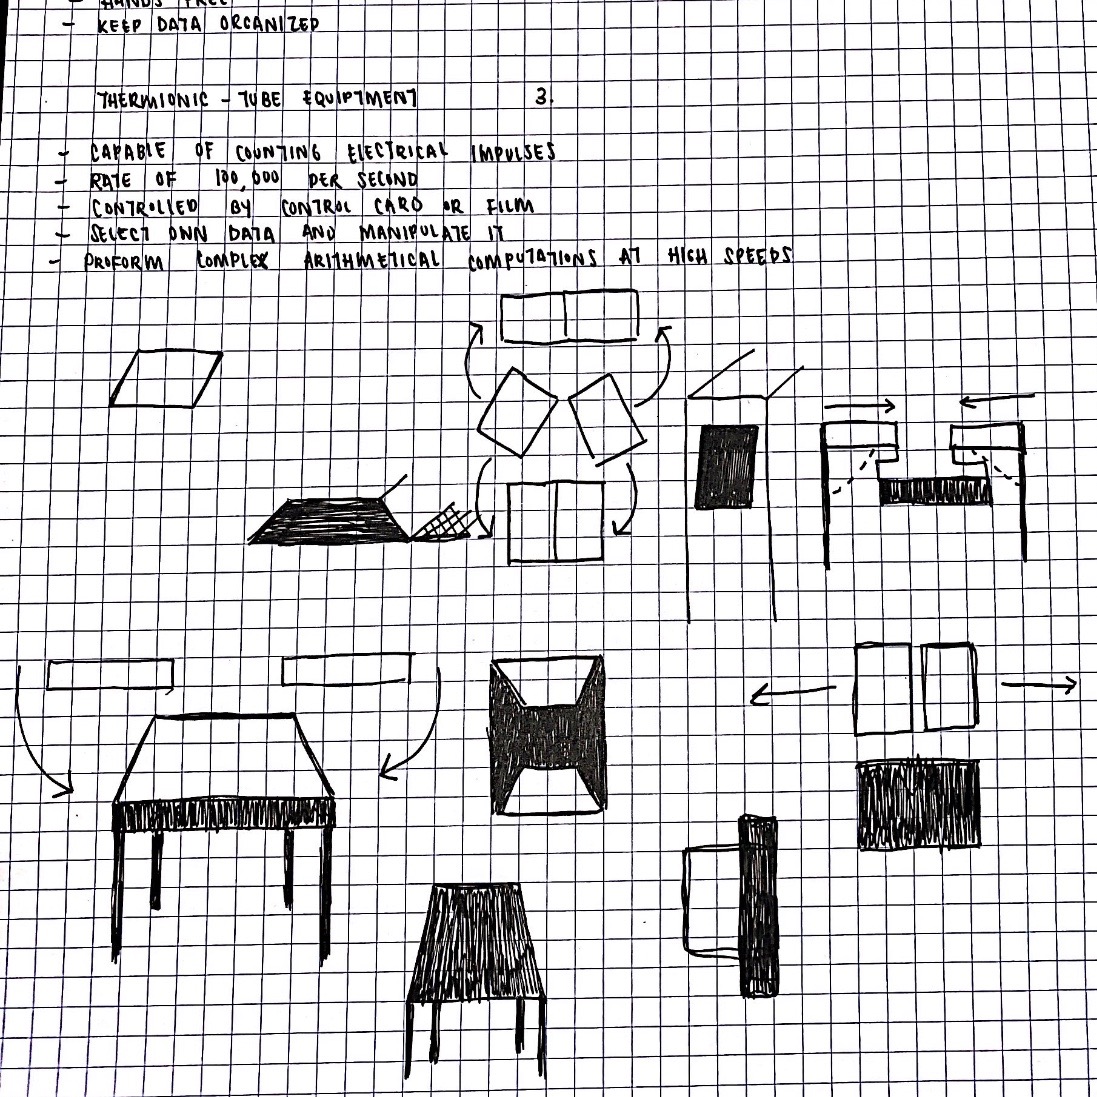 - HANDS FREE
- KEEP DATA ORGANIZED
THERMIONIC - TUBE EQUIPTMENT 3.
- CAPABLE OF COUNTING ELECTRICAL IMPULSES
- RATE OF 100,000 PER SECOND
- CONTROLLED BY CONTROL CARD OR FILM
- SELECT OWN DATA AND MANIPULATE IT
- PROFORM COMPLEX ARITHMETICAL COMPUTATIONS AT HIGH SPEEDS